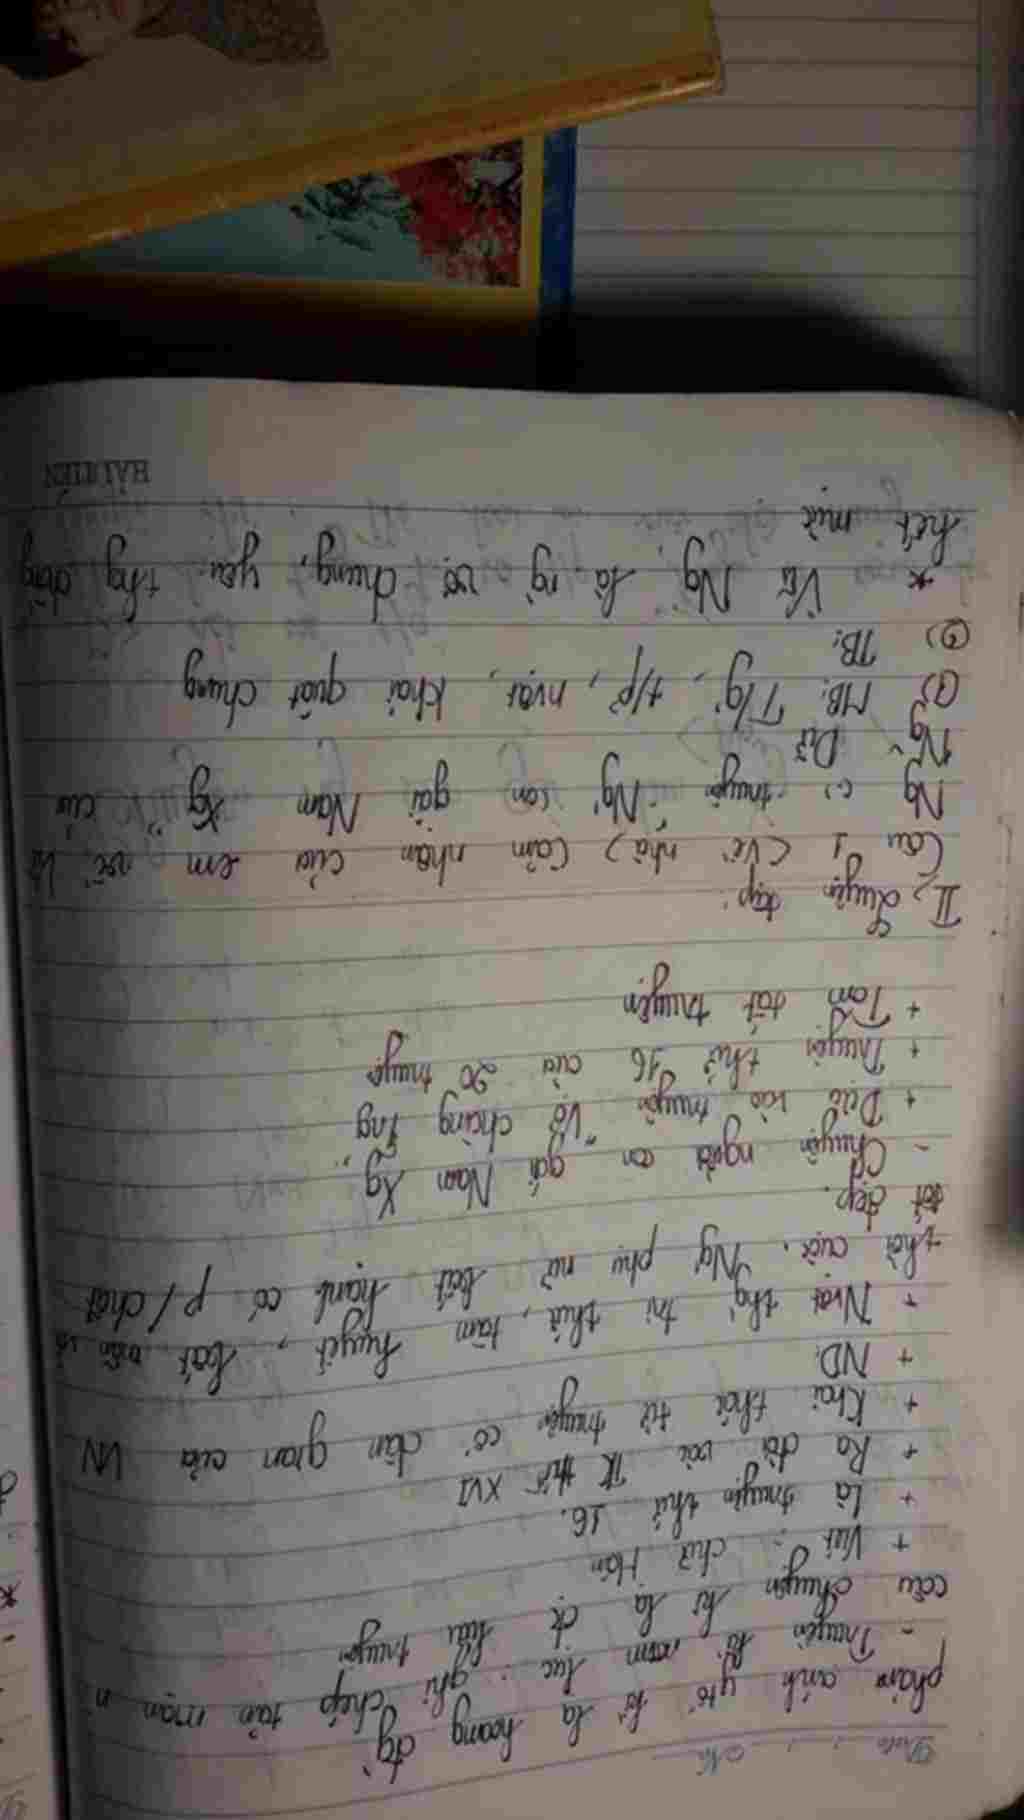 Date. No.
phản ánh ytố kì lạ hoang đg
- Truyền kì mạn lục: ghi chép tản mạn n
câu chuyện kì lạ đc lưu truyền
+ Viết: chữ Hán
+ Là truyện thứ 16.
+ Ra đời vài TK thứ XVI
+ Khai thác từ truyện cổ dân gian của VN
+ ND:
+ Nvật thg trí thức, tâm huyết, bất mãn vs
thời cuộc. Ng phụ nữ bất hạnh có p/chất
tốt đẹp.
- Chuyện người con gái Nam Xg
+ Dựa vào truyện "Vợ chàng Trg"
+ Truyện thứ 16 của 20 truyện
+ Tóm tắt truyện
II, Luyện tập:
Câu 1 (Về nhà) Cảm nhận của em về Vũ
Ng c) truyện Ng con gái Nam Xg của
Ng Dữ
(1) MB: T/g, t/p, nvật, khái quát chung
(2) TB:
* Vũ Ng là ng vợ chung, yêu thg chồng
hết mực
HẢI TIẾN